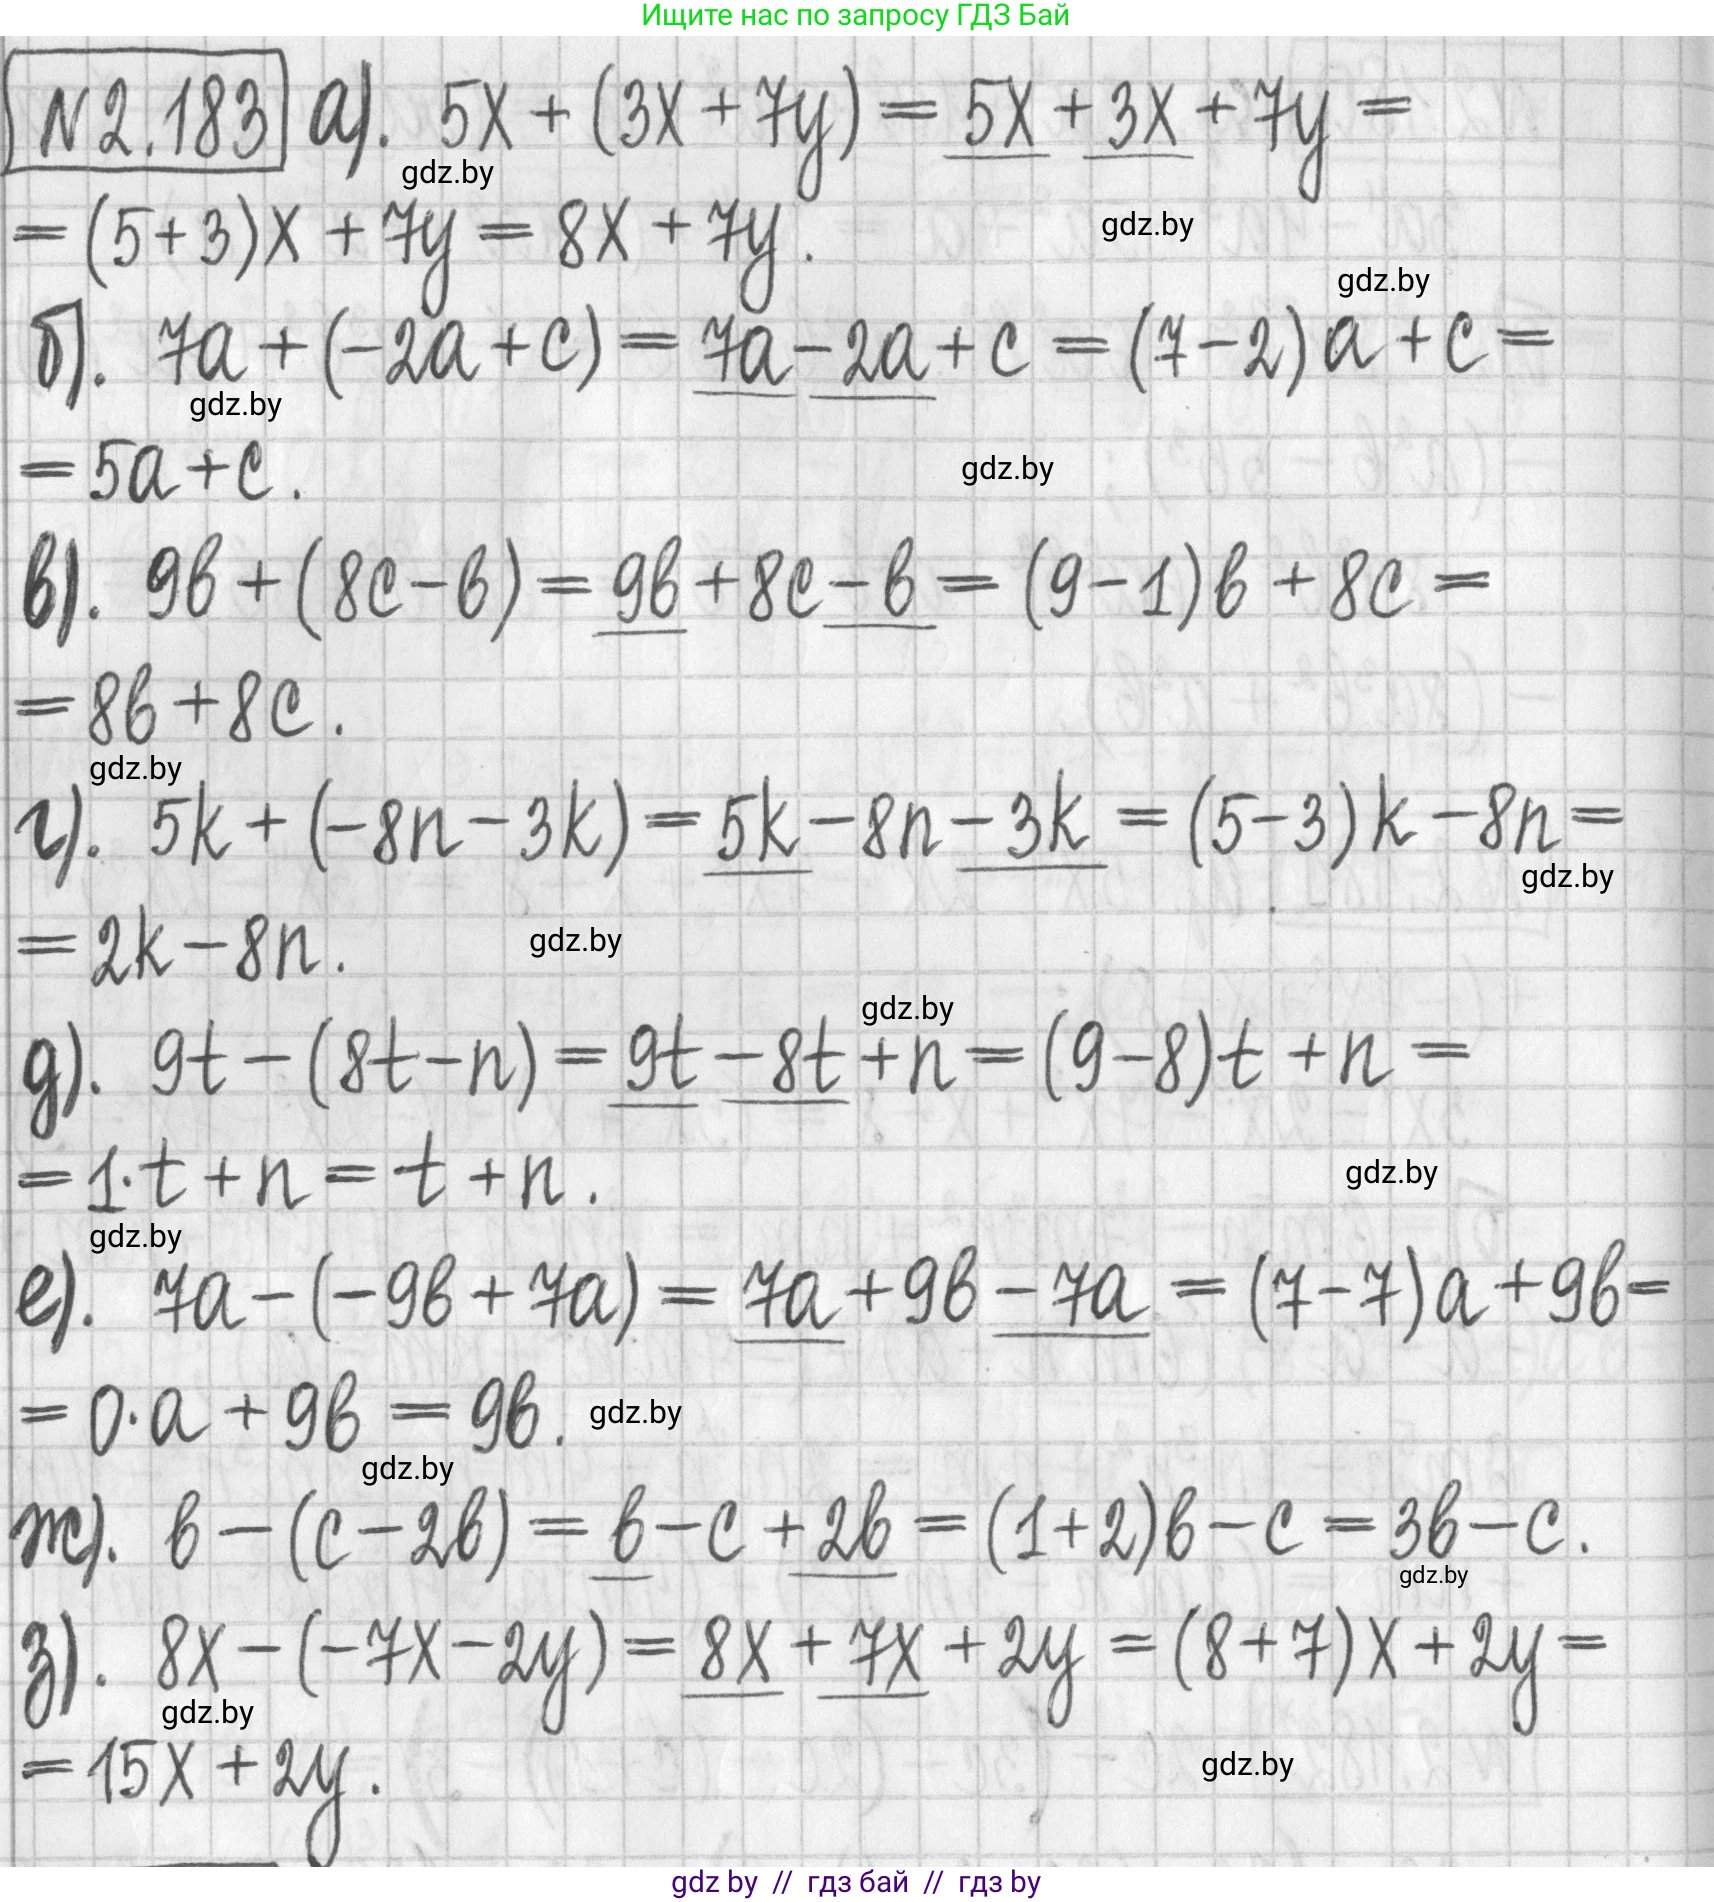 Ищите нас по запросу ГДЗ Бай
N2.183 а). 5x + (3x + 7y) = 5x + 3x + 7y =
gdz.by
= (5+3)x + 7y = 8x + 7y.
gdz.by
gdz.by
б). 7a + (-2a + c) = 7a - 2a + c = (7-2)a + c =
gdz.by
= 5a + c.
gdz.by
в). 9в + (8c - в) = 9в + 8c - в = (9-1)в + 8c =
= 8в + 8c.
gdz.by
г). 5k + (-8n - 3k) = 5k - 8n - 3k = (5-3)k - 8n =
gdz.by
= 2k - 8n.
gdz.by
gdz.by
д). 9t - (8t - n) = 9t - 8t + n = (9-8)t + n =
= 1·t + n = t + n.
gdz.by
gdz.by
е). 7a - (-9в + 7a) = 7a + 9в - 7a = (7-7)a + 9в =
= 0·a + 9в = 9в.
gdz.by
gdz.by
ж). в - (c - 2в) = в - c + 2в = (1+2)в - c = 3в - c.
gdz.by
з). 8x - (-7x - 2y) = 8x + 7x + 2y = (8+7)x + 2y =
gdz.by
= 15x + 2y.
gdz.by
gdz by // гдз бай // гдз by